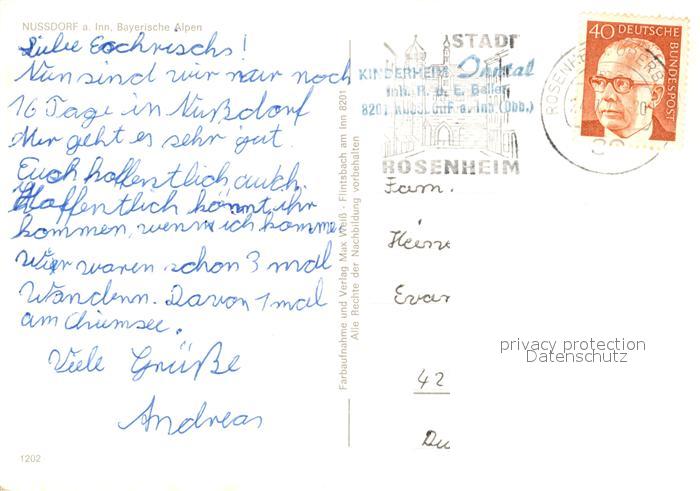 NUSSDORF a. Inn, Bayerische Alpen
Liebe Eochrischs!
Nun sind wir nur noch
16 Tage in Nußdorf
Mir geht es sehr gut.
Euch hoffentlich auch.
Hoffentlich könnt ihr
kommen, wenn ich komme
Wir waren schon 3 mal
Wandern. Davon 1 mal
am Chiemsee.
Viele Grüße
Andreas
1202
Farbaufnahme und Verlag Max Weiß · Flintsbach am Inn 8201
Alle Rechte der Nachbildung vorbehalten
STADT
ROSENHEIM
KINDERHEIM Inntal
Inh. R. u. E. Beller
8201 Nussdorf a. Inn (Obb.)
40 DEUTSCHE
BUNDESPOST
Fam.
42
Du
privacy protection
Datenschutz